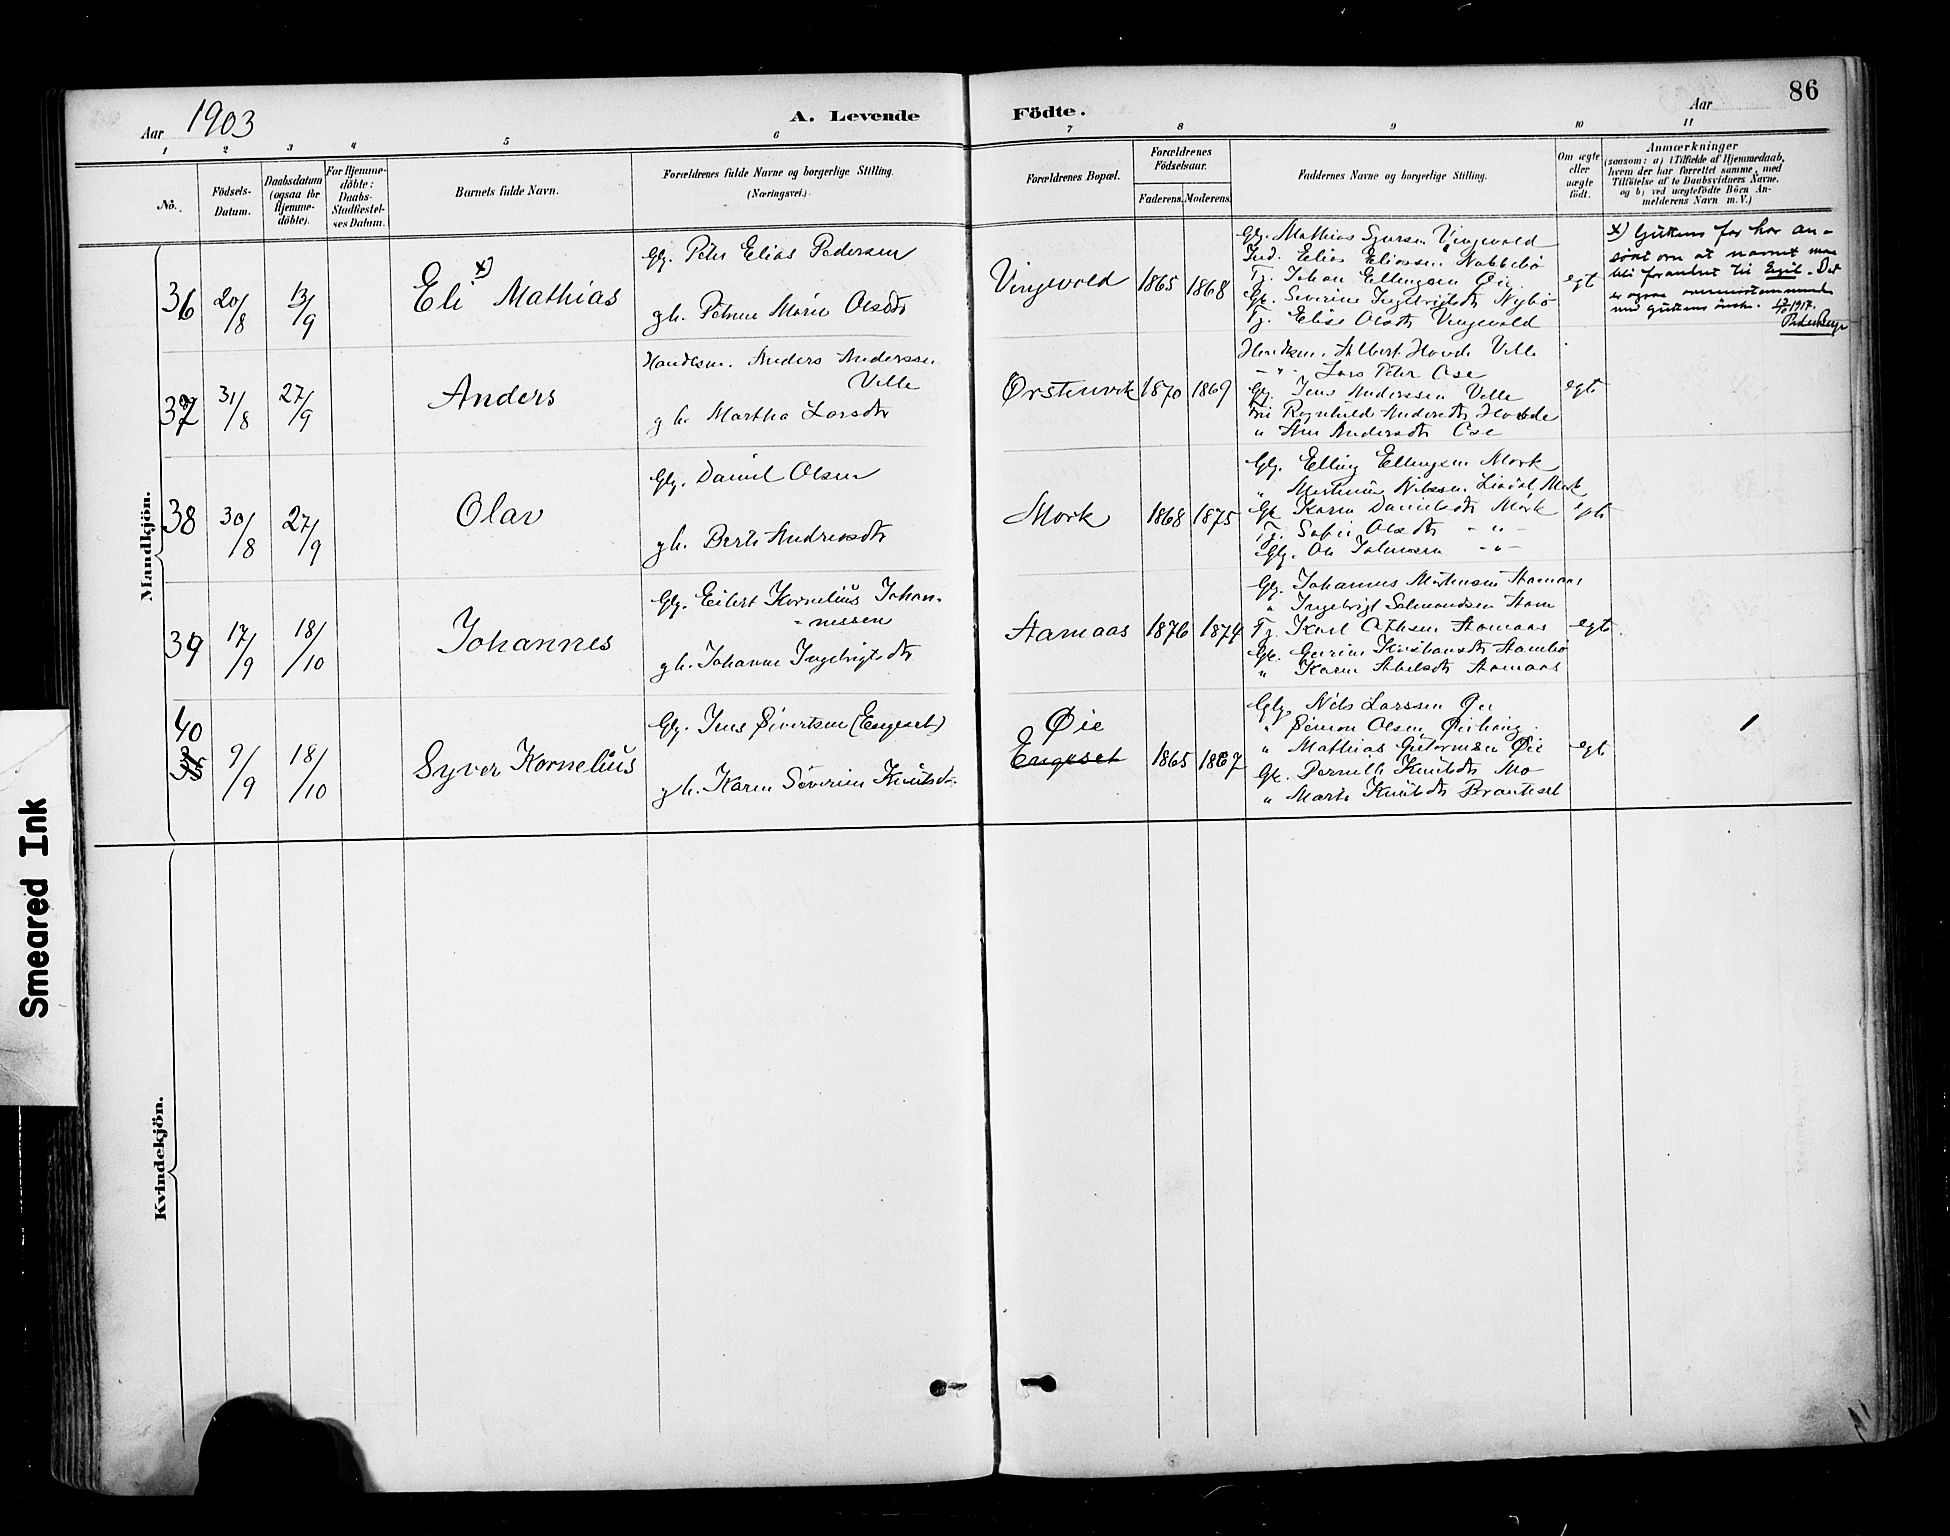 Aar 1903
A. Levende Födte.
Aar
86
1 2 3 4 5 6 7 8 9 10 11
No.
Födsels-Datum.
Daabsdatum (ogsaa for Hjemme-döbte).
For Hjemme-döbte: Daabs-Stadfæstel-ses Datum.
Barnets fulde Navn.
Forældrenes fulde Navne og borgerlige Stilling.
(Næringsvei.)
Forældrenes Bopæl.
Forældrenes Födselsaar.
Faderens. Moderens.
Faddernes Navne og borgerlige Stilling.
Om ægte eller uægte födt.
Anmærkninger
(saasom: a) i Tilfælde af Hjemmedaab,
hvem der har forrettet samme, med
Tilföielse af to Daabsvidners Navne.
og b) ved uægtefödte Börn An-
melderens Navn m. V.)
Mandkjön.
36 20/8 13/9
Eli x) Mathias
Glg. Peter Elias Pedersen
gh. Petrine Marie Olsdtr
Vingevold 1865 1868
Glg. Mathias Sjursen Vingevold
Ind. Elias Eliassen Nabbebø
Tj. Johan Ellingsen Øie
Gk. Severine Ingebrigtsdtr Nybø
Tj. Elise Olsdtr Vingevold
egt
x) Guttens far har an-
søkt om at navnet maa
bli forandret til Egil. Det
er ogsaa overensstemmende
med guttens ønske. 1917.
Peder Berge
37 31/8 27/9
Anders
Handelsm. Anders Anderssen
Velle
gh. Martha Larsdtr
Ørstenvik 1870 1869
Handelsm. Albert Hovde Velle
- " - Lars Peter Ose
Glg. Jens Anderssen Velle
Fru Ragnhild Andersdtr Hovde
" Ane Andersdtr Ose
egt
38 30/8 27/9
Olav
Glg. Daniel Olsen
gh. Berte Andreasdtr
Mork 1868 1875
Glg. Elling Ellingsen Mork
" Martinus Nilssen Lisdal Mork
Gk Karen Danielsdtr Mork
Tj. Sofie Olsdtr - " -
Glg. Ole Johnsen - " -
egt
39 17/9 18/10
Johannes
Glg. Eilert Kornelius Johan-
nessen
gh. Johanne Ingebrigtsdtr
Aamaas 1876 1874
Glg. Johannes Martinusen Aamaas
" Ingebrigt Salmondsen Aam
Tj. Karl Aamaas
Gk. Gurine Kristiansdtr Aambø
" Karen Abelsdtr Aamaas
egt
40
9/9 18/10
Syver Kornelius
Glg. Jens Sivertsen (Engeset)
gh. Karen Severine Knutsdtr
Øie
Engeset 1865 1867
Glg. Nils Larssen Øie
" Simon Olsen Øiehaug
" Mathias Guttormsen Øie
Gk. Pernille Knutsdtr Mo
" Marte Knutsdtr Brauteset
egt
Kvindekjön.
Smeared Ink